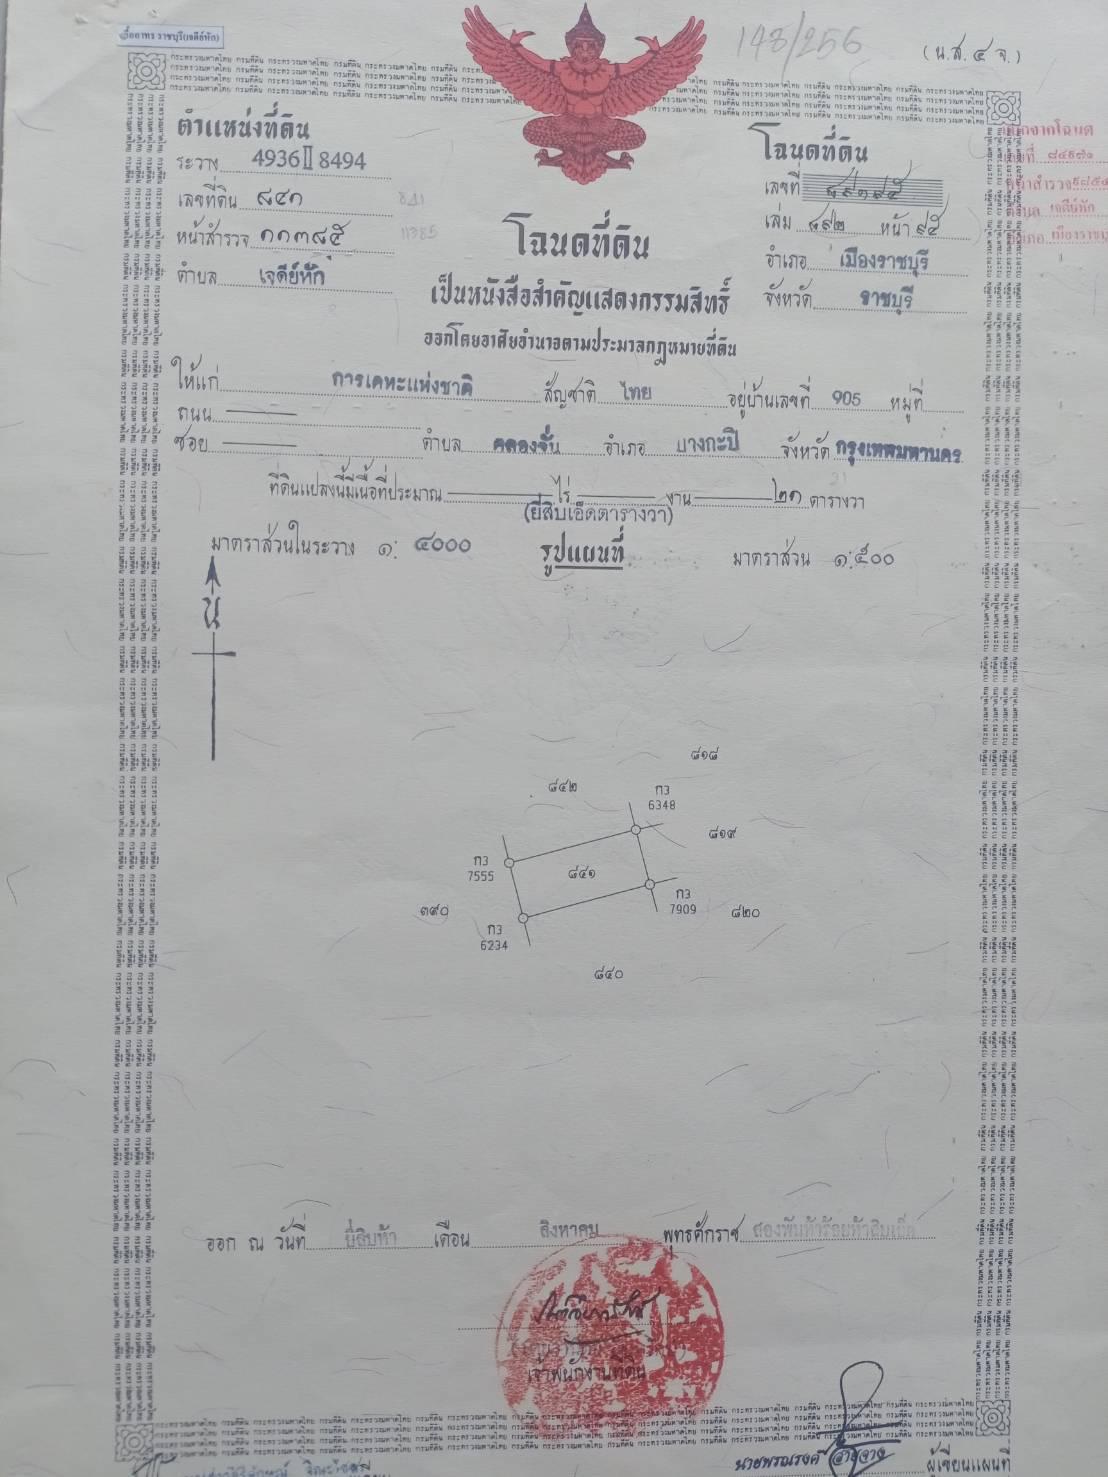 เอื้ออาทร ราชบุรี(เจดีย์หัก)
148/256
(น.ส.๔ จ.)
ตำแหน่งที่ดิน
ระวาง 4936 II 8494
เลขที่ดิน ๘๔๑ 841
หน้าสำรวจ ๑๑๓๘๕ 11385
ตำบล เจดีย์หัก
โฉนดที่ดิน
เลขที่ ๘๙๑๙๕
เล่ม ๘๙๒ หน้า ๙๕
อำเภอ เมืองราชบุรี
จังหวัด ราชบุรี
โฉนดที่ดิน
เป็นหนังสือสำคัญแสดงกรรมสิทธิ์
ออกโดยอาศัยอำนาจตามประมวลกฎหมายที่ดิน
ให้แก่ การเคหะแห่งชาติ สัญชาติ ไทย อยู่บ้านเลขที่ 905 หมู่ที่
ถนน
ซอย ตำบล คลองจั่น อำเภอ บางกะปิ จังหวัด กรุงเทพมหานคร
ที่ดินแปลงนี้มีเนื้อที่ประมาณ ไร่ งาน ๒๑ ตารางวา
(ยี่สิบเอ็ดตารางวา)
มาตราส่วนในระวาง ๑: ๔๐๐๐ รูปแผนที่ มาตราส่วน ๑:๕๐๐
น
๘๑๘
๘๔๒
ก3
6348
๘๑๙
ก3
7555
๘๔๑
ก3
7909
๓๙๐
๘๒๐
ก3
6234
๘๔๐
ออก ณ วันที่ ยี่สิบห้า เดือน สิงหาคม พุทธศักราช สองพันห้าร้อยห้าสิบเอ็ด
เจ้าพนักงานที่ดิน
นายพรณรงค์
ผู้เขียนแผนที่